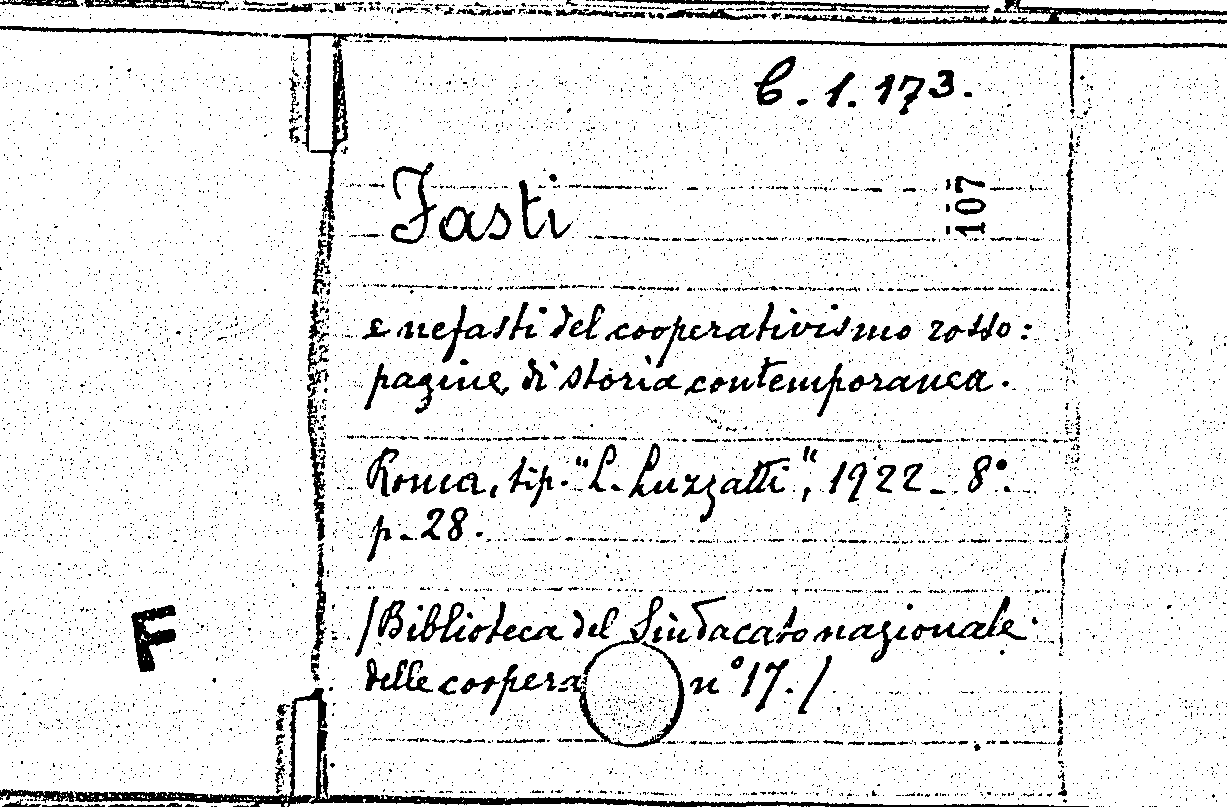 C. 1. 173.
107
Fasti
e nefasti del cooperativismo rosso:
pagine di storia contemporanea.
Roma, tip. "L. Luzzatti", 1922 - 8°.
p. 28.
F
/Biblioteca del Sindacato nazionale
delle coopera n° 17./